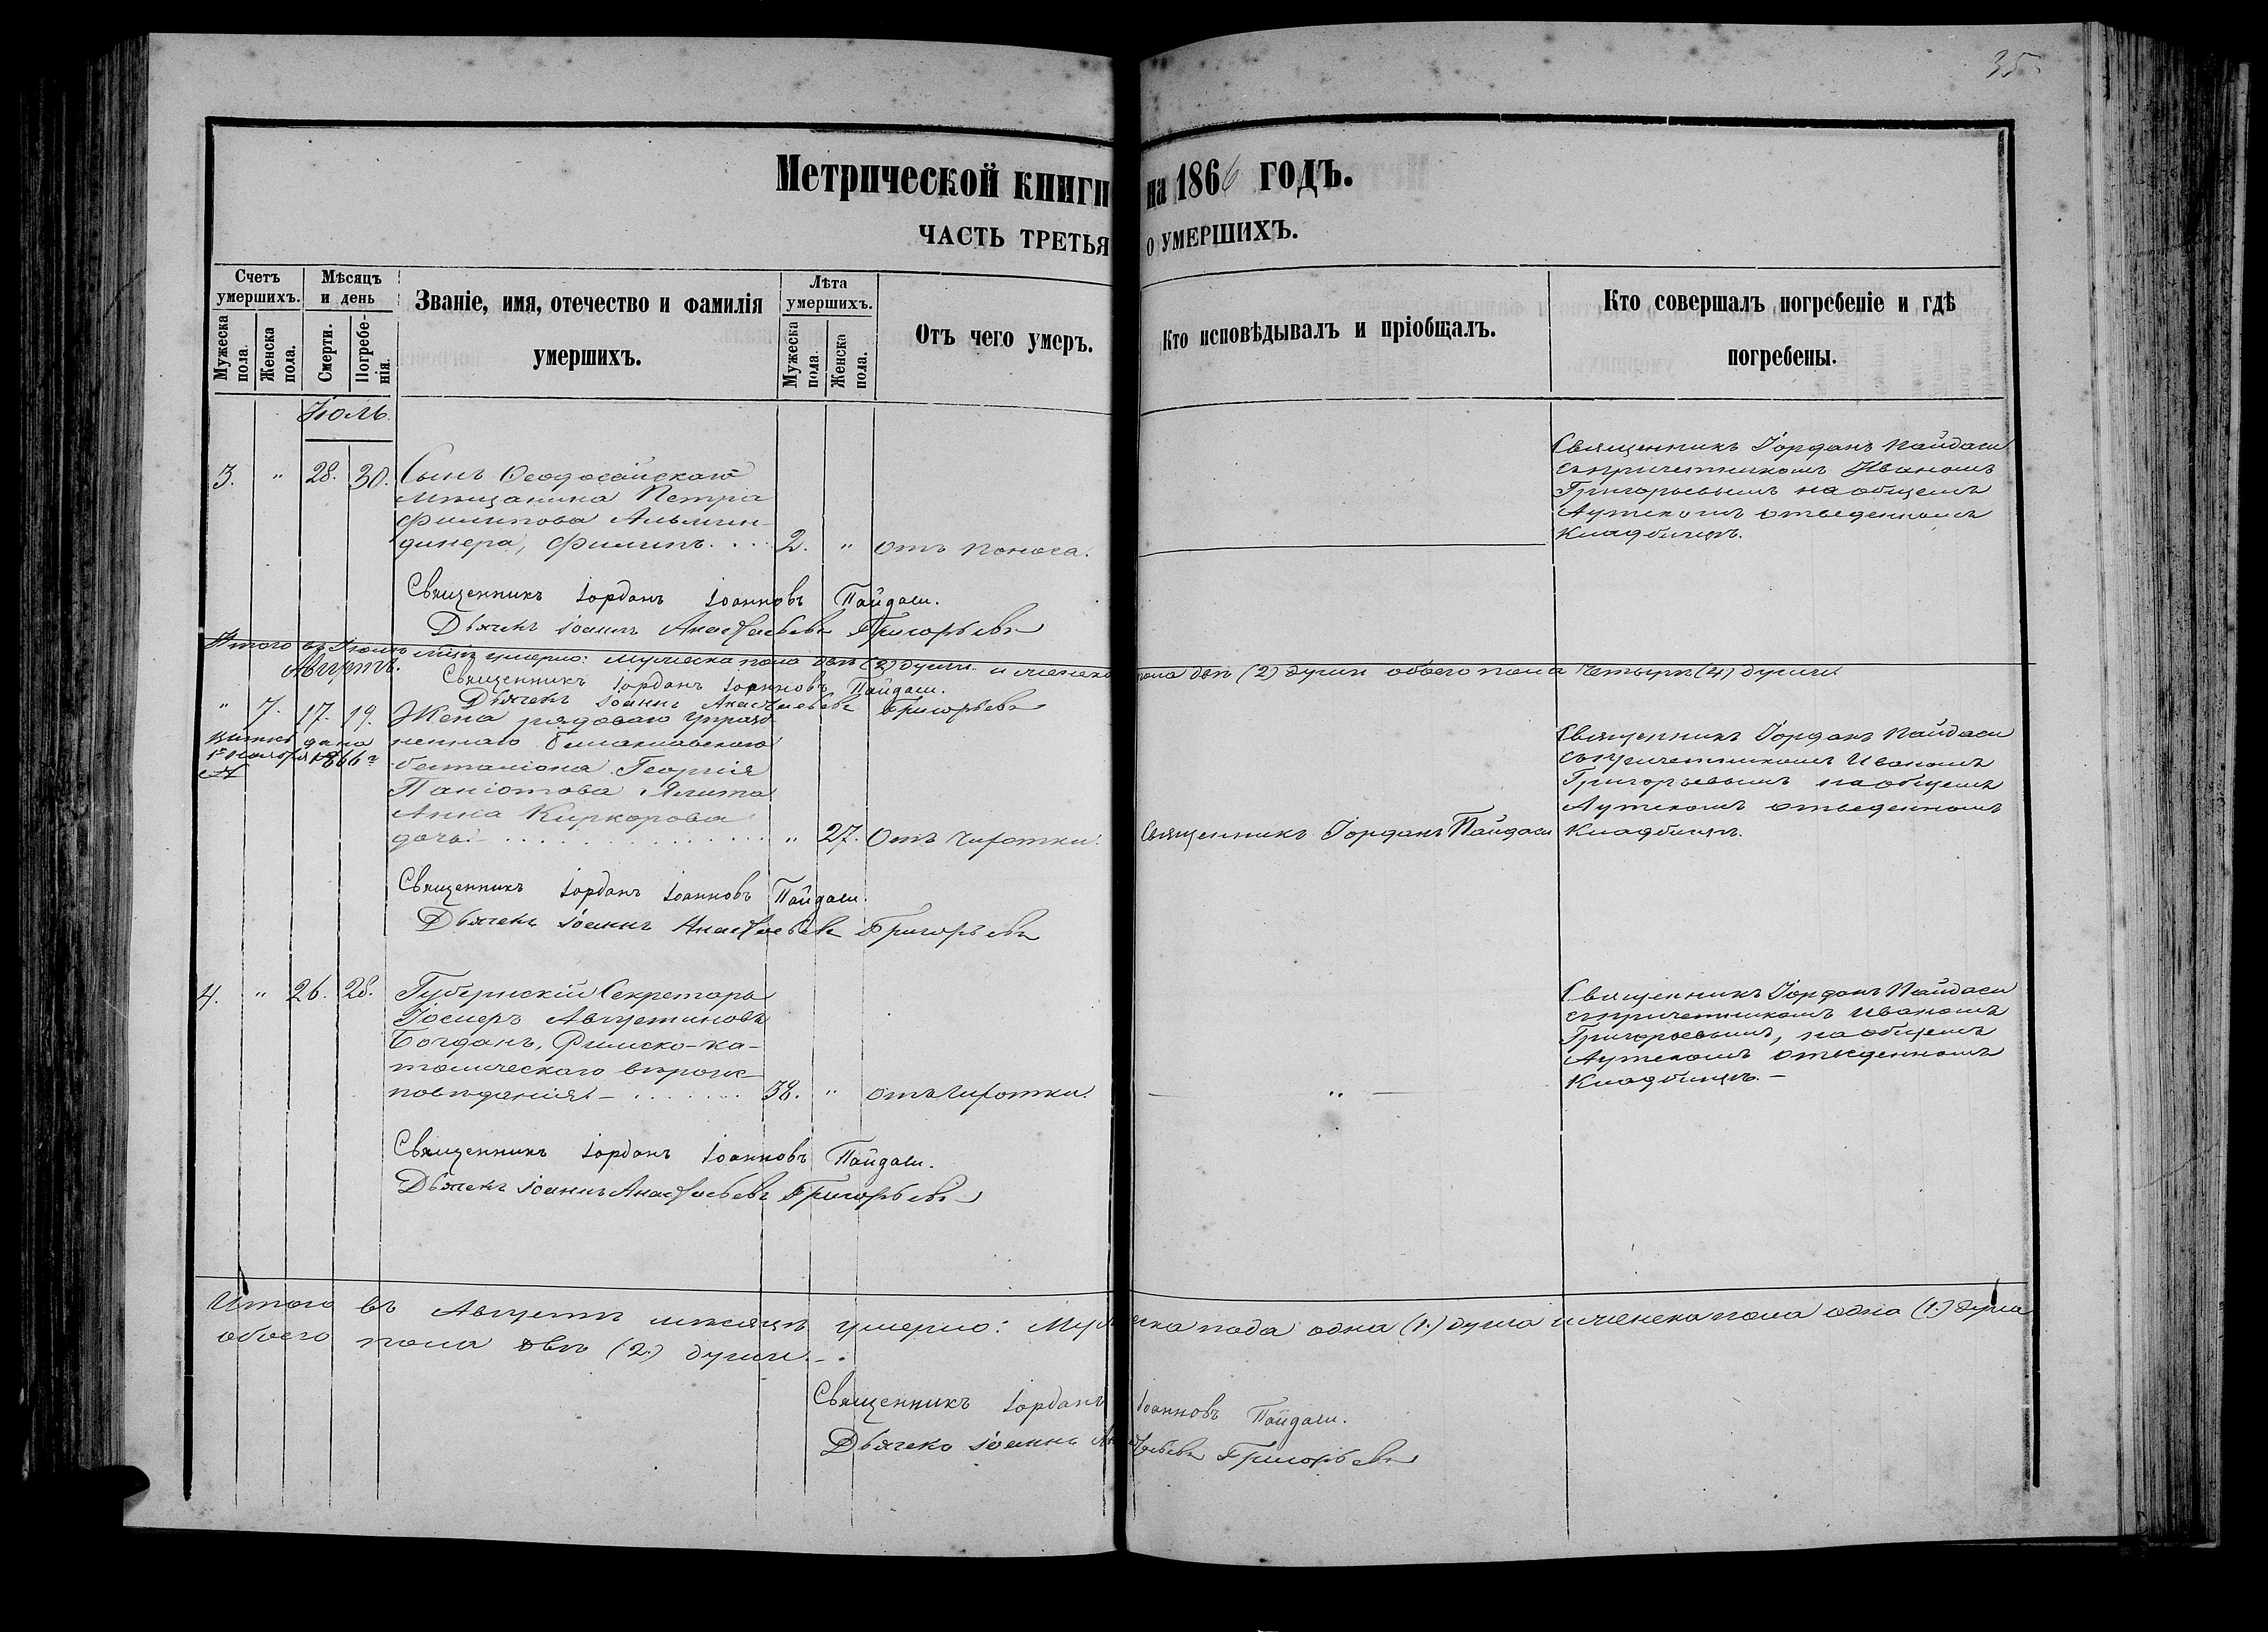 35
Метрической книги на 1866 годъ.
ЧАСТЬ ТРЕТЬЯ о УМЕРШИХЪ.
Счетъ умершихъ.
Мужеска пола.
Женска пола.
Мѣсяцъ и день
Смерти.
Погребенія.
Званіе, имя, отечество и фамилія умершихъ.
Лѣта умершихъ.
Мужеска пола.
Женска пола.
Отъ чего умеръ.
Кто исповѣдывалъ и пріобщалъ.
Кто совершалъ погребеніе и гдѣ погребены.
Іюль.
3. " 28. 30. Сынъ Ѳеодосійскаго
мѣщанина Петра
Филипова
Филипъ. . . . 2. " отъ поноса.
Священникъ Іорданъ Пайдаси
съ причетникомъ Иваномъ
Григорьевымъ на общемъ
Аутскомъ отведенномъ
Кладбищѣ.
Священникъ Іорданъ Іоанновъ Пайдаси.
Дьячекъ Іоаннъ Анастасьевъ Григорьевъ
Итого въ Іюлѣ м-цѣ умерло: мужеска пола двѣ (2) души и женска пола двѣ (2) души обоего пола четыре (4) души.
Священникъ Іорданъ Іоанновъ Пайдаси.
Дьячекъ Іоаннъ Анастасьевъ Григорьевъ
Августъ.
" 7. 17. 19. Жена рядоваго упразд-
неннаго Балаклавскаго
баталіона Георгія
Паніотова Ялита
Анна Киркорова
дочь. . . . " 27. Отъ чахотки.
1866 г.
Священникъ Іорданъ Пайдаси
Священникъ Іорданъ Пайдаси
съ причетникомъ Иваномъ
Григорьевымъ на общемъ
Аутскомъ отведенномъ
Кладбищѣ.
Священникъ Іорданъ Іоанновъ Пайдаси.
Дьячекъ Іоаннъ Анастасьевъ Григорьевъ
4. " 26. 28. Губернскій Секретарь
Августиновъ
Богданъ, Римско-ка-
толическаго вѣроис-
повѣданія. – . . . . 38. " отъ чахотки.
— " —
Священникъ Іорданъ Пайдаси
съ причетникомъ Иваномъ
Григорьевымъ, на общемъ
Аутскомъ отведенномъ
Кладбищѣ. –
Священникъ Іорданъ Іоанновъ Пайдаси.
Дьячекъ Іоаннъ Анастасьевъ Григорьевъ
Итого въ Августѣ мѣсяцѣ умерло: Мужеска пола одна (1.) душа и женска пола одна (1.) душа
обоего пола двѣ (2.) души. – .
Священникъ Іорданъ Іоанновъ Пайдаси.
Дьячекъ Іоаннъ Анастасьевъ Григорьевъ